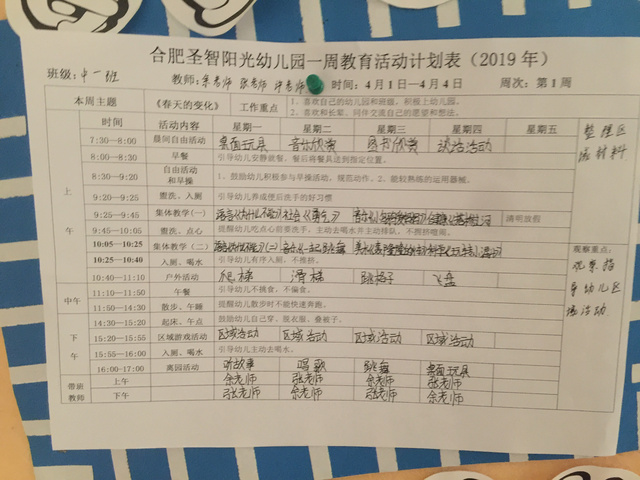 合肥圣智阳光幼儿园一周教育活动计划表（2019 年）
班级：中一班 教师：余老师 张老师 时间：4月1日—4月4日 周次：第1周
本周主题 《春天的变化》 工作重点 1、喜欢自己的幼儿园和班级，积极上幼儿园。
2、喜欢和长辈、同伴交流自己的愿望和想法。
时间 活动内容 星期一 星期二 星期三 星期四 星期五
上午
7:30—8:00 晨间自由活动 桌面玩具 音乐欣赏 图书欣赏 谈话活动
8:00—8:30 早餐 引导幼儿安静就餐，餐后将餐具送到指定位置。
8:30—9:20 自由活动和早操 1、鼓励幼儿积极参与早操活动，规范动作。2、能较熟练的运用器械。
9:20—9:25 盥洗、入厕 引导幼儿养成便后洗手的好习惯
9:25—9:45 集体教学（一） 清明放假
9:45—10:05 盥洗、点心 提醒幼儿吃点心前要洗手，主动去喝水并主动排队，不拥挤喧闹。
10:05—10:25 集体教学（二）
10:25—10:40 入厕、喝水 引导幼儿有序入厕，不推挤。
10:40—11:10 户外活动 爬梯 滑梯 跳格子 飞盘
中午
11:10—11:50 午餐 引导幼儿不挑食，不偏食。
11:50—14:30 散步、午睡 提醒幼儿散步时不能快速奔跑。
下午
14:30—15:20 起床、午点 鼓励幼儿自己穿、脱衣服，叠被子。
15:20—15:55 区域游戏活动 区域活动 区域活动 区域活动 区域活动
15:55—16:00 入厕、喝水 引导幼儿主动去喝水。
16:00—17:00 离园活动 听故事 唱歌 跳舞 桌面玩具
带班教师
上午 余老师 张老师 余老师 张老师
下午 张老师 余老师 张老师 余老师
整理区
域材料
观察重点：
观察指
导幼儿区
域活动